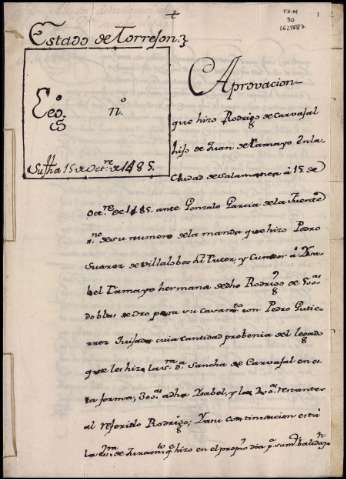 Estado de Torrejon
Leg.º n.º
Su fha 15 de Oct.re de 1485.
Aprovacion
que hizo Rodrigo de Carvajal
hijo de Juan de Tamayo en la
Ciudad de Salamanca á 15. de
Oct.re de 1485. ante Gonzalo Garcia de la Fuente
de su numero de la manda que hizo Pedro
Suarez de Villalobos su Tutor, y á
bel Tamayo hermana de dho Rodrigo de
doblas de Oro para su casam.to con Pedro Gutie
rrez cuia cantidad probenia del legado
que les hizo la S.ra D.ª Sancha de Carvajal en es
ta forma, 300 á dha Ysabel, y las restantes
al referido Rodrigo; Y a su continuacion está
la de Juram.to q.e hizo en el propio dia p.a su